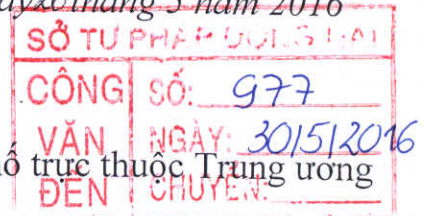 tháng 5 năm 2016
SỞ TƯ PHÁP
CÔNG VĂN ĐẾN
SỐ: 977
NGÀY: 30/5/2016
CHUYỂN:
ố trực thuộc Trung ương